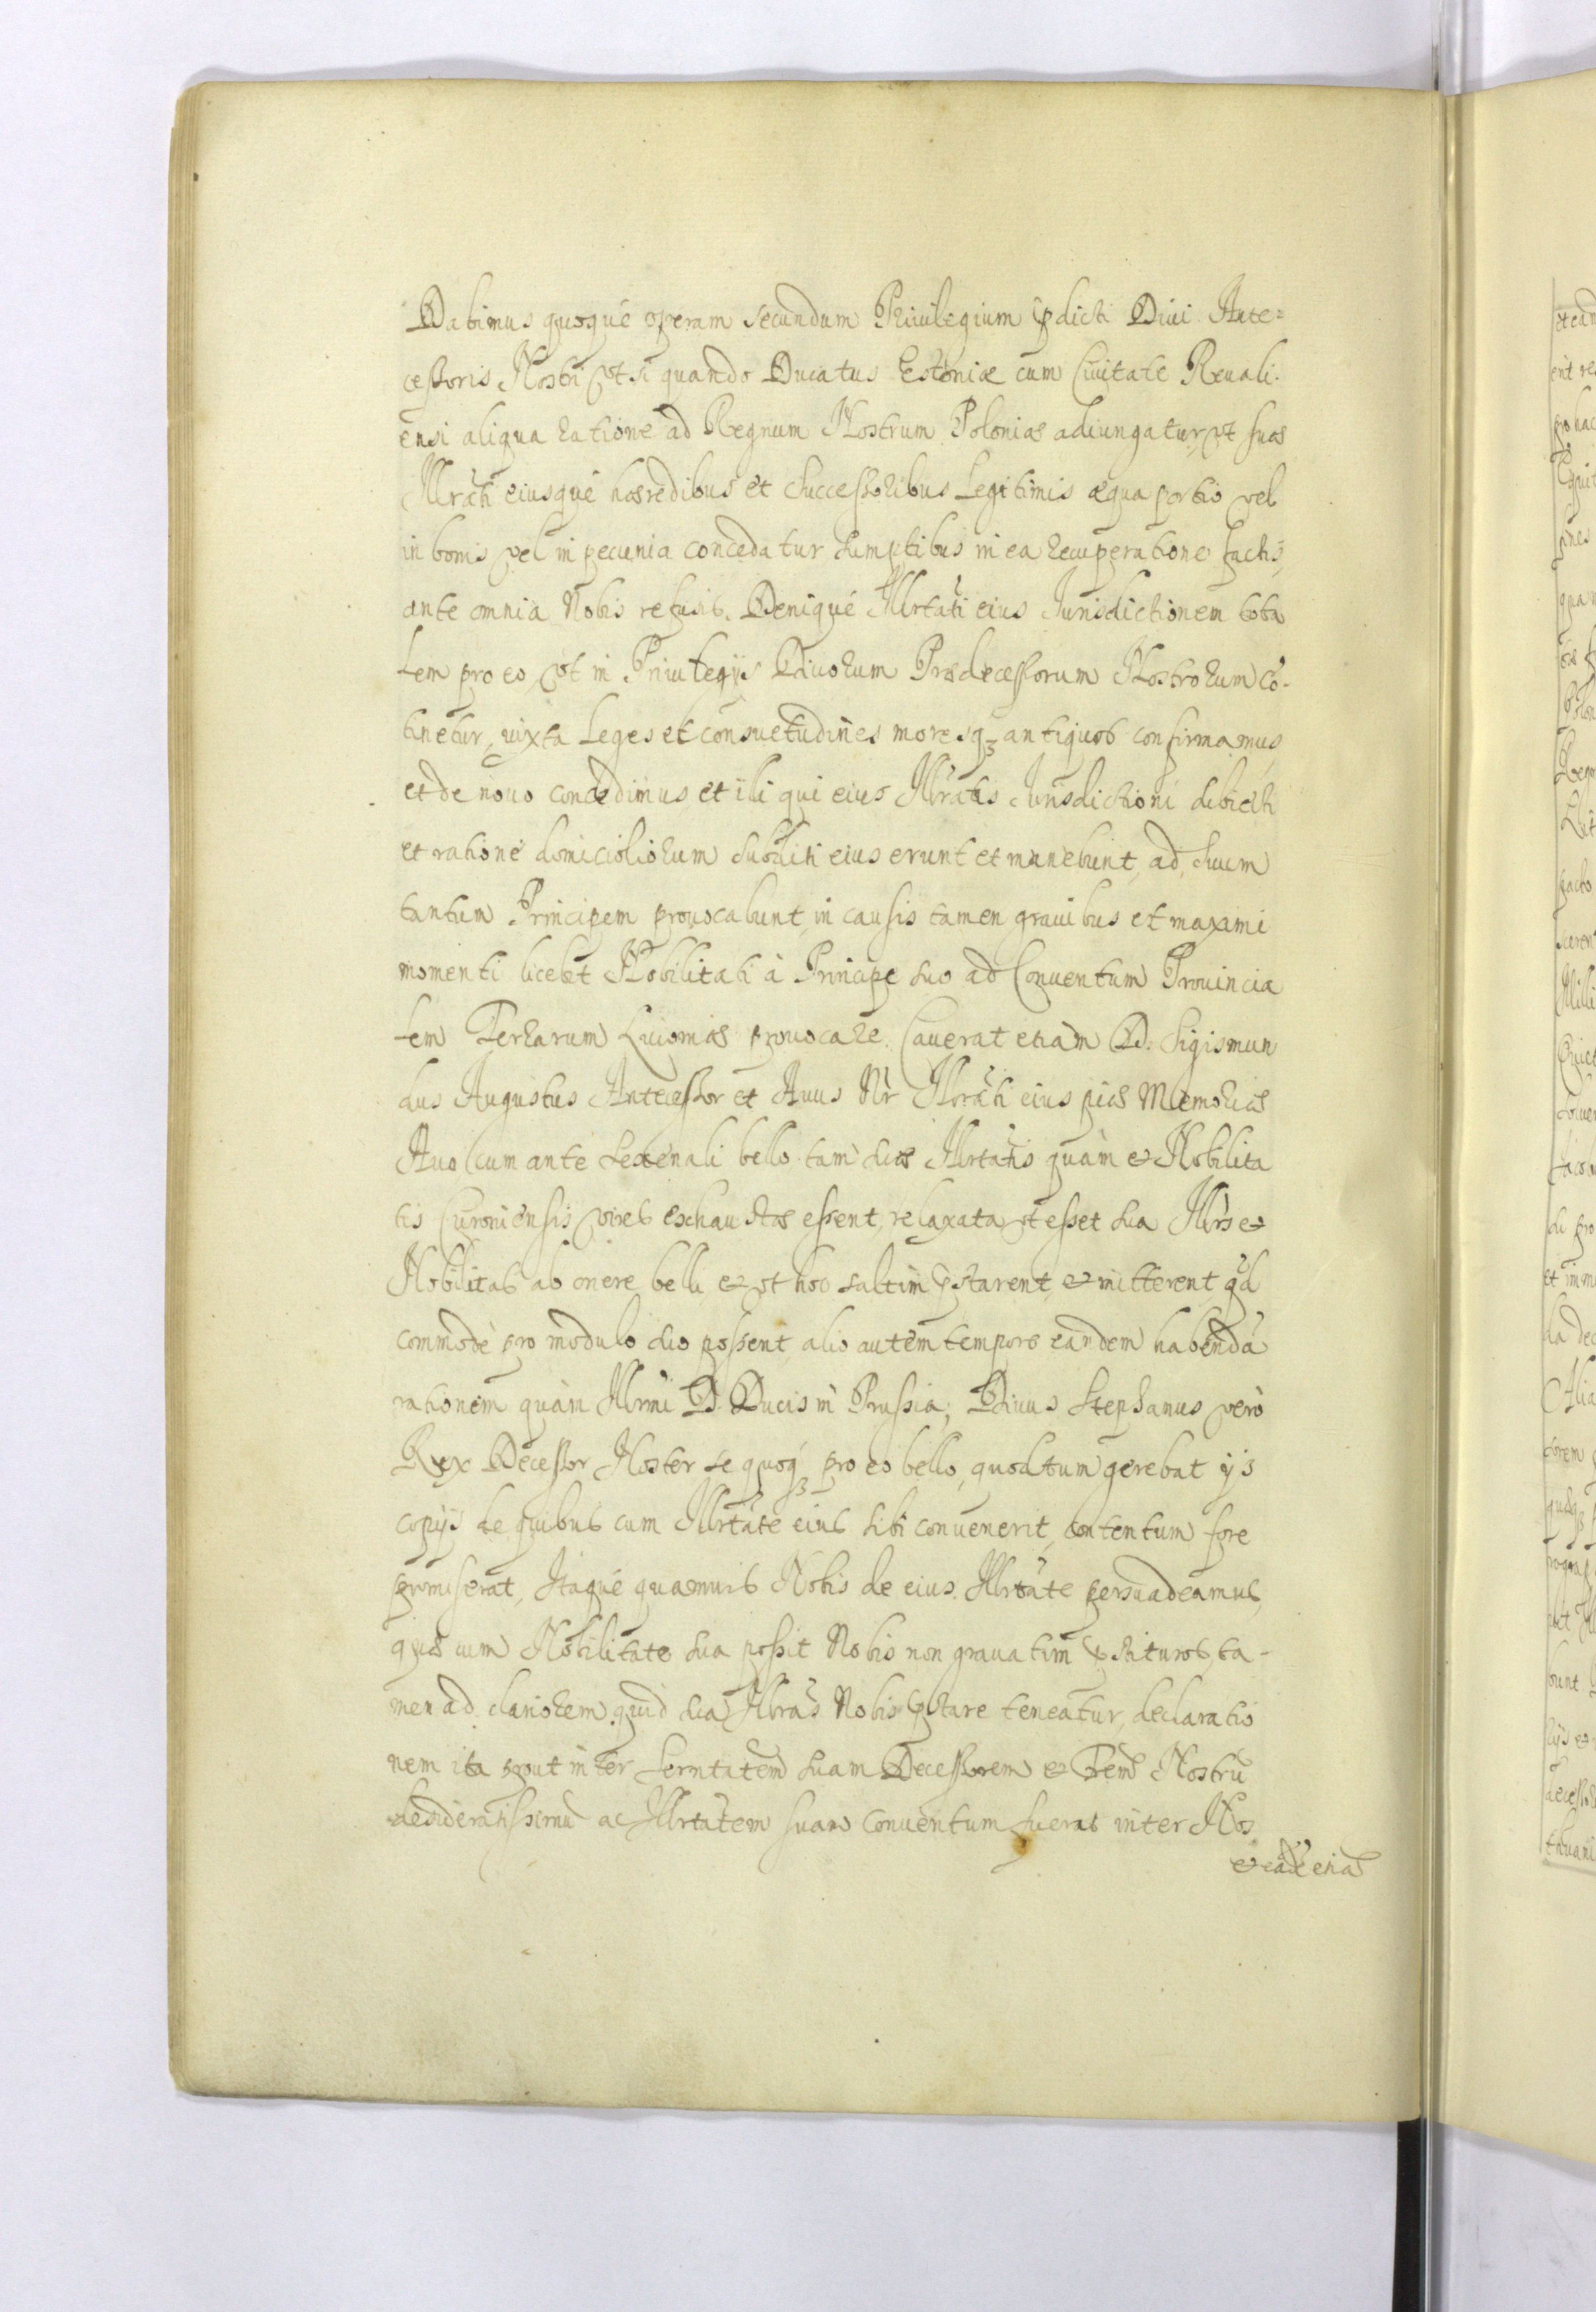 Dabimus quoque operam secundum Priuilegium pdicti Diui Ante=
cessoris Nostri vt si quando Ducatus Estoniæ cum Ciuitate Reuali.
ensi aliqua ratione ad Regnum Nostrum Poloniæ adiungatur, vt suæ
Illrati eiusque hæredibus et Successoribus Legitimis æqua portio vel
in bonis vel in pecunia concedatur sumptibus in ea recuperatione factis,
ante omnia Nobis refusis. Denique Illrtati eius Iurisdictionem tota
lem pro eo, vt in Priuilegijs Diuorum Prædecessorum Nostrorum co-
tinetur, iuxta Leges et consuetudines moresq3 antiquos confirmamus,
et de nouo concedimus, et illi qui eius Illratis Iurisdictioni subiecti
et ratione domiciliorum subditi eius erunt et manebunt, ad suum
tantum Principem prouocabunt, in causis tamen grauibus et maximi
momenti licebit Nobilitati à Principe suo ad Conuentum Prouincia
lem Terrarum Liuoniæ prouocare. Cauerat etiam D. Sigismun
dus Augustus Antecessor et Auus Nr Illrati eius piæ Memoriæ
Auo cum ante sexenali bello tam suæ Illrtatis quàm & Nobilita
tis Curoniensis vires exhaustæ essent, relaxata vt esset sua Illrs &
Nobilitas ab onere belli & vt hoc saltim pstarent, & mitterent qd
commodè pro modulo suo possent, alio autem tempore eandem habenda
rationem quàm Illrmi D. Ducis in Prussia, Diuus Stephanus verò
Rex Decessor Noster se quoq3 pro eo bello, quod tum gerebat ijs
copijs de quibus cum Illrtate eius sibi conuenerit, contentum fore
promiserat, Itaque quamuis Nobis de eius Illrtate persuadeamus,
quæ cum Nobilitate sua possit Nobis non grauatim pstituros, ta-
men ad clariorem quid sua Illras Nobis pstare teneatur, declaratio
nem ita prout inter Sermtatem suam Decessorem & Nostru
desideratissimu ac Illrtatem suam conuentum fuerat inter Nos
& eadē etiā